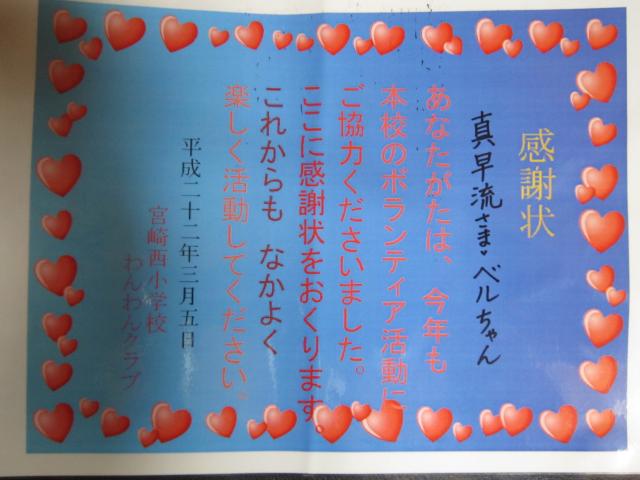 感謝状
真早流さま・ベルちゃん
あなたがたは、今年も
本校のボランティア活動に
ご協力くださいました。
ここに感謝状をおくります。
これからも なかよく
楽しく活動してください。
平成二十二年三月五日
宮崎西小学校
わんわんクラブ